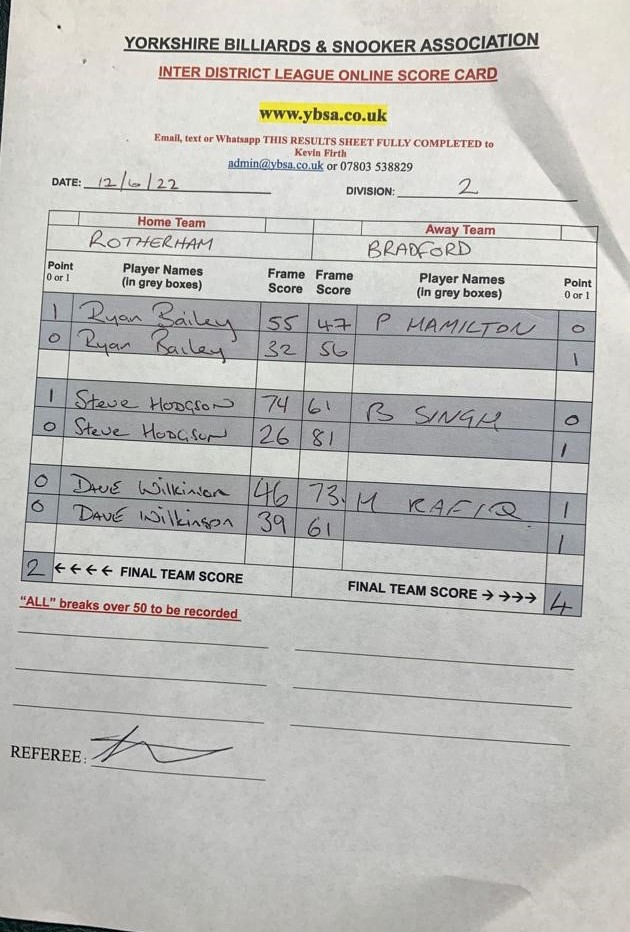 YORKSHIRE BILLIARDS & SNOOKER ASSOCIATION
INTER DISTRICT LEAGUE ONLINE SCORE CARD
www.ybsa.co.uk
Email, text or Whatsapp THIS RESULTS SHEET FULLY COMPLETED to
Kevin Firth
admin@ybsa.co.uk or 07803 538829
DATE: 12/6/22 DIVISION: 2
Home Team Away Team
ROTHERHAM BRADFORD
Point Player Names Frame Frame Player Names Point
0 or 1 (in grey boxes) Score Score (in grey boxes) 0 or 1
1 Ryan Bailey 55 47 P HAMILTON 0
0 Ryan Bailey 32 56 1
1 Steve HODGSON 74 61 B SINGH 0
0 Steve HODGSON 26 81 1
0 DAVE Wilkinson 46 73 M RAFIQ 1
0 DAVE Wilkinson 39 61 1
2 ←←←← FINAL TEAM SCORE FINAL TEAM SCORE → →→→ 4
"ALL" breaks over 50 to be recorded
REFEREE: